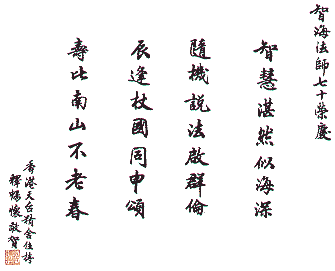 智海法師七十榮慶
智慧湛然似海深
隨機説法啟群倫
辰逢杖國同申頌
壽比南山不老春
香港天台精舍住持
釋暢懷敬賀